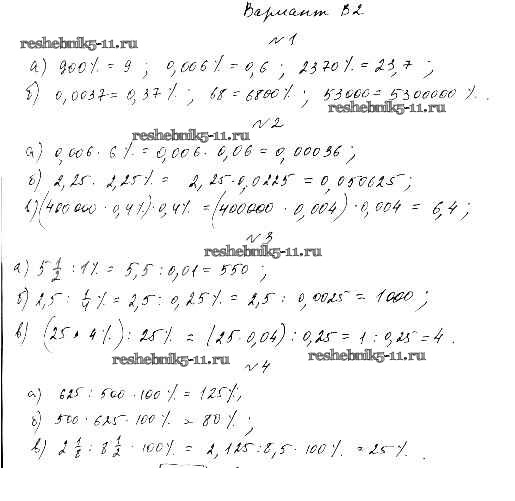 Вариант В2
reshebnik5-11.ru
№1
а) 900% = 9 ; 0,006% = 0,6 ; 2370% = 23,7 ;
б) 0,0037 = 0,37% ; 68 = 6800% ; 53000 = 5300000 % .
reshebnik5-11.ru
№2
reshebnik5-11.ru
а) 0,006 · 6% = 0,006 · 0,06 = 0,00036 ;
б) 2,25 · 2,25% = 2,25 · 0,0225 = 0,050625 ;
в) (400000 · 0,4%) · 0,4% = (400000 · 0,004) · 0,004 = 6,4 ;
№3
reshebnik5-11.ru
а) 5 1/2 : 1% = 5,5 : 0,01 = 550 ;
б) 2,5 : 1/4 % = 2,5 : 0,25% = 2,5 : 0,0025 = 1000 ;
в) (25 · 4%) : 25% = (25 · 0,04) : 0,25 = 1 : 0,25 = 4 .
reshebnik5-11.ru
reshebnik5-11.ru
№4
а) 625 : 500 · 100% = 125% ,
б) 500 · 625 · 100% = 80% ;
в) 2 1/8 : 8 1/2 · 100% = 2,125 : 8,5 · 100% = 25% .